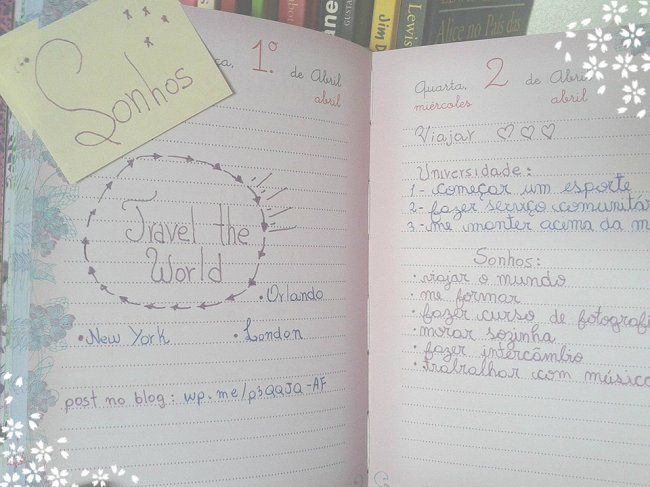 Sonhos
ça, 1.º de Abril
abril
Travel the
World
• Orlando
• New York • London
post no blog: wp.me/p3QQJQ-AF
Quarta, 2 de Abri
miércoles abril
Viajar ♡♡♡
Universidade:
1- começar um esporte
2- fazer serviço comunitár
3- me manter acima da m
Sonhos:
• viajar o mundo
• me formar
• fazer curso de fotografi
• morar sozinha
• fazer intercâmbio
• trabalhar com músic
GUSTA
Jim D
Lewis
Alice no País das